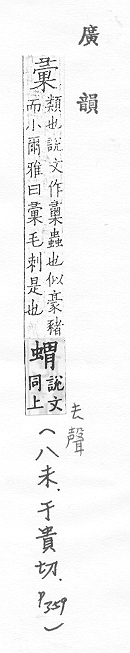 廣韻
彚 類也說文作𧲍蟲也似豪豬
而小爾雅曰彙毛刺是也
蝟 說文
同上
去聲
(八未.于貴切.P359)